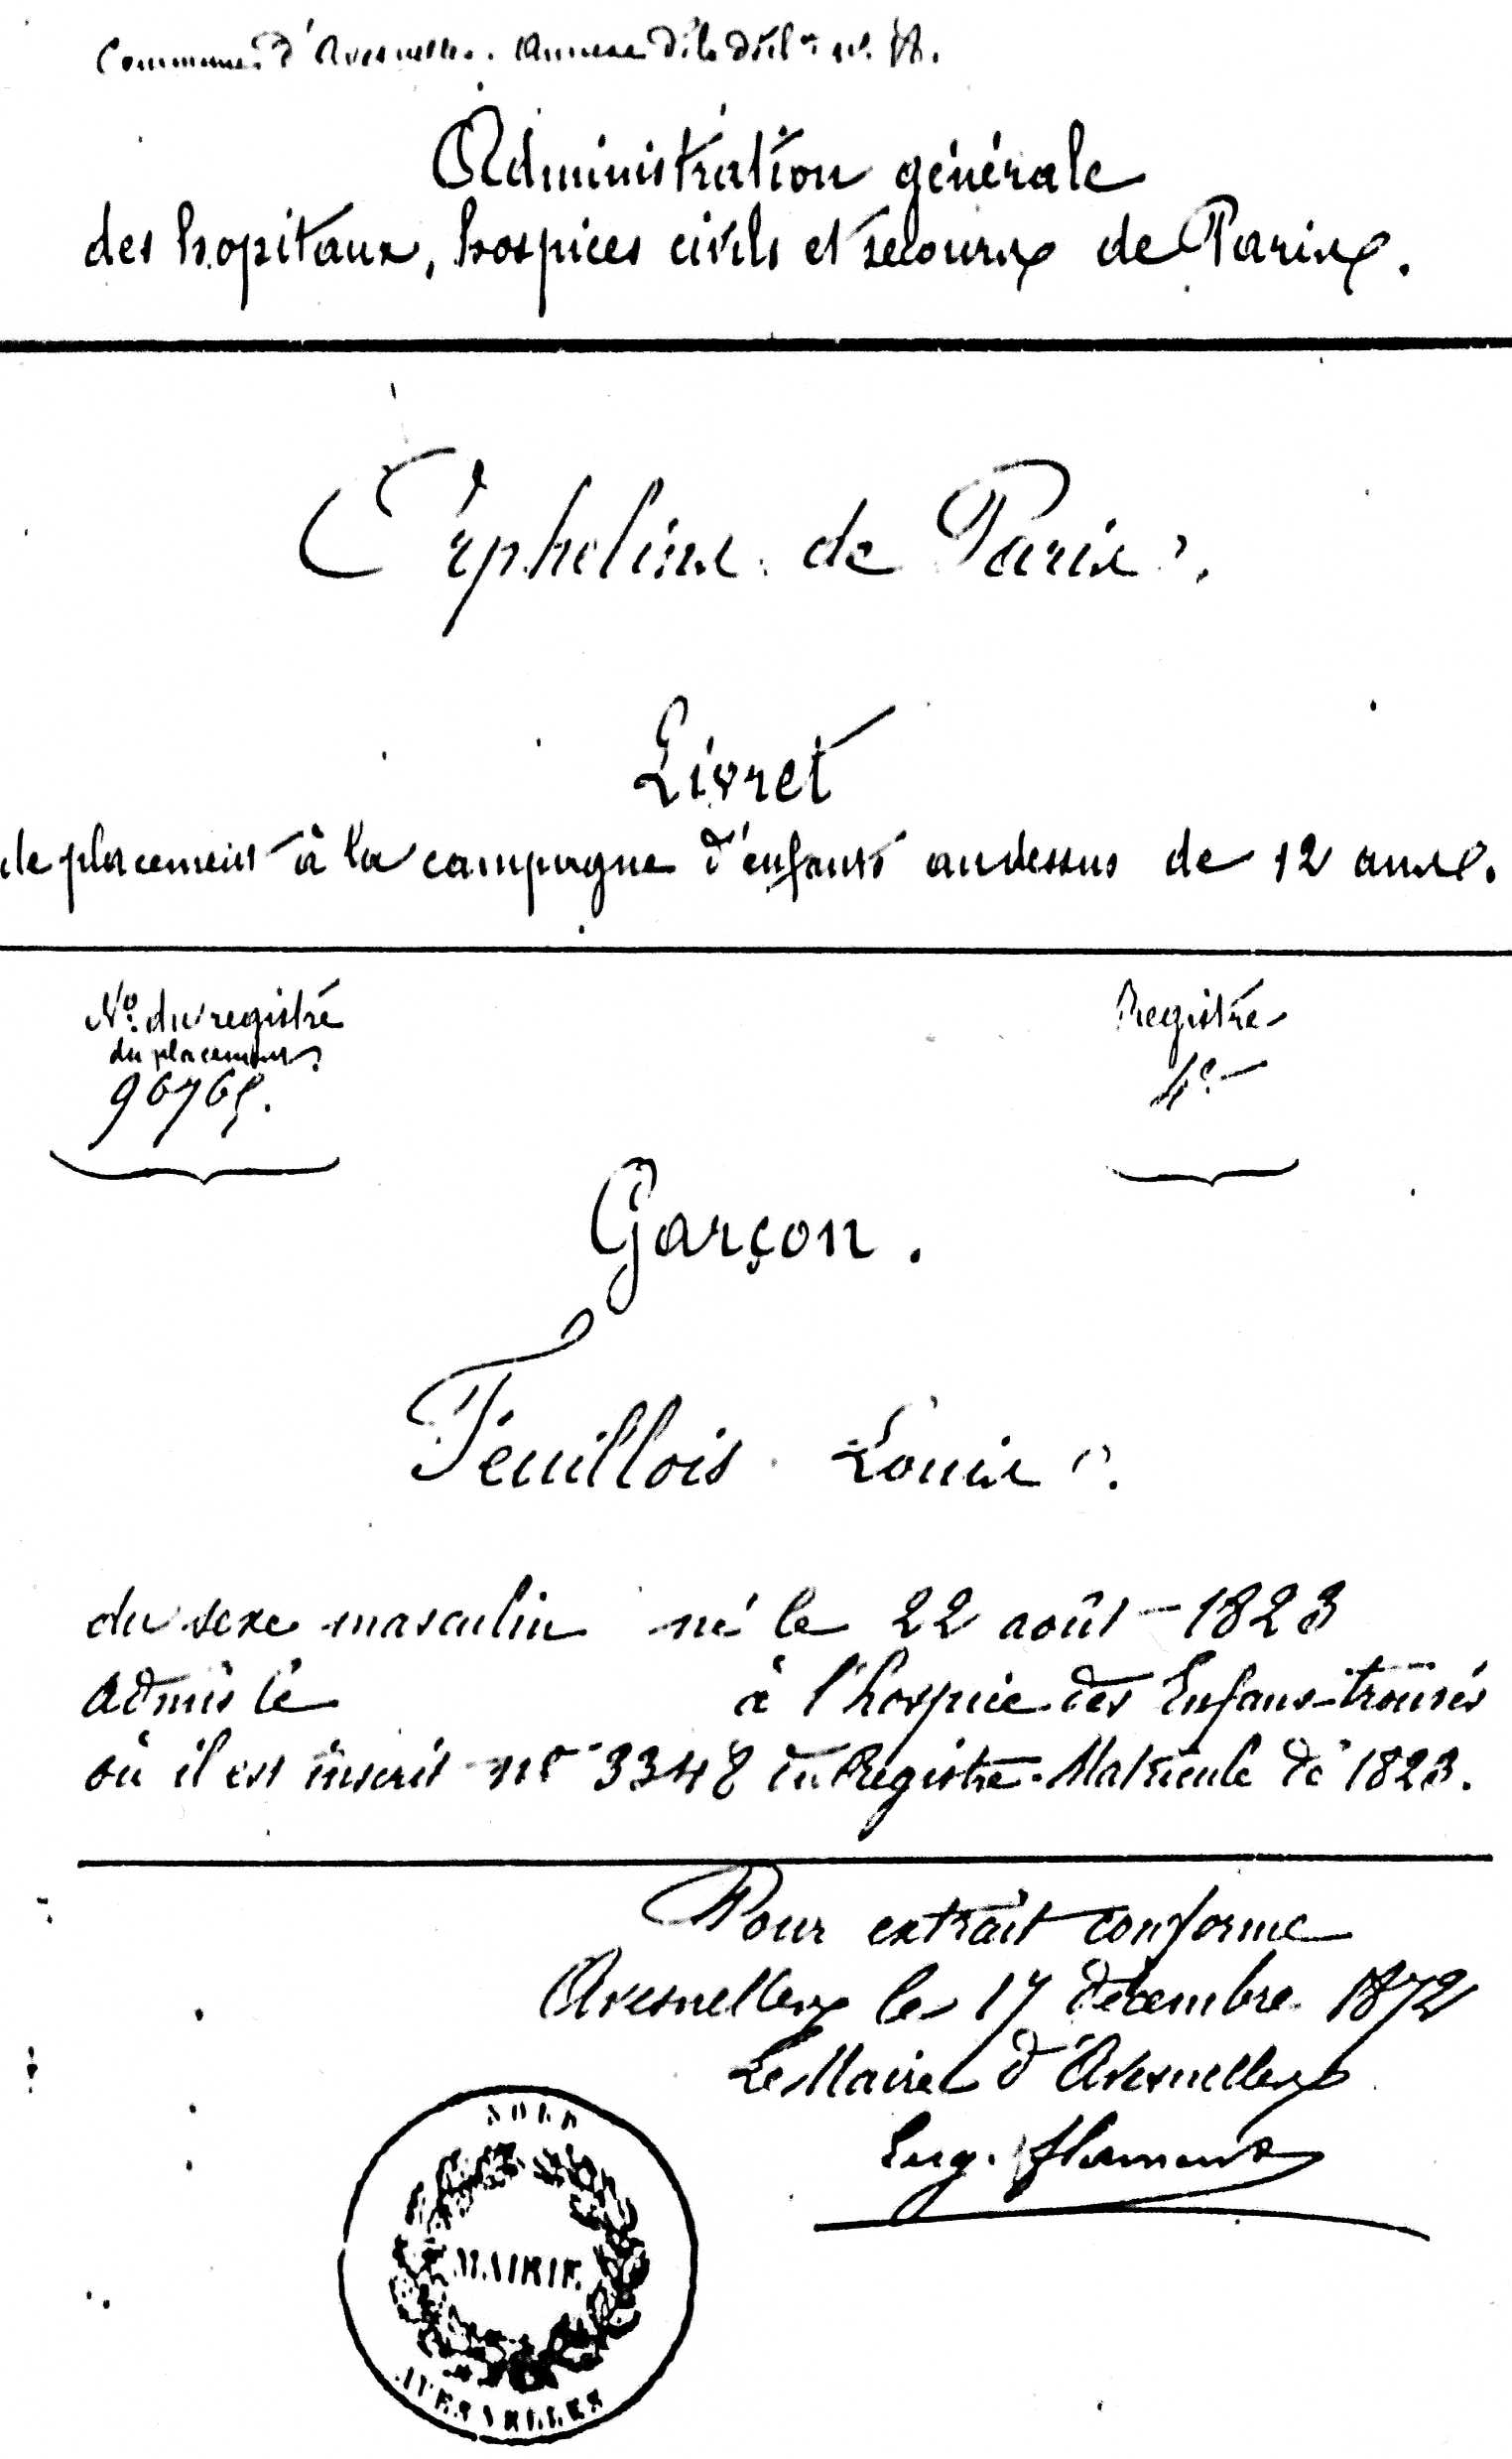 Commune d'Avesnelles. Annexe de la décl.on n.
Administration générale
des hopitaux, hospices civils et secours de Paris.
Orphelins de Paris.
Livret
de placement à la campagne d'enfants audessus de 12 ans.
No. du registre
du placement
96765.
Registre
4e
Garçon.
Feuillois Louis.
du sexe masculin né le 22 août 1823
admis le à l'hospice des Enfans-trouvés
où il est inscrit no 3348 du Registre-Matricule de 1823.
Pour extrait conforme
Avesnelles le 17 décembre 1872
Le Maire d'Avesnelles
Eug. flament
NORD
MAIRIE
AVESNELLES